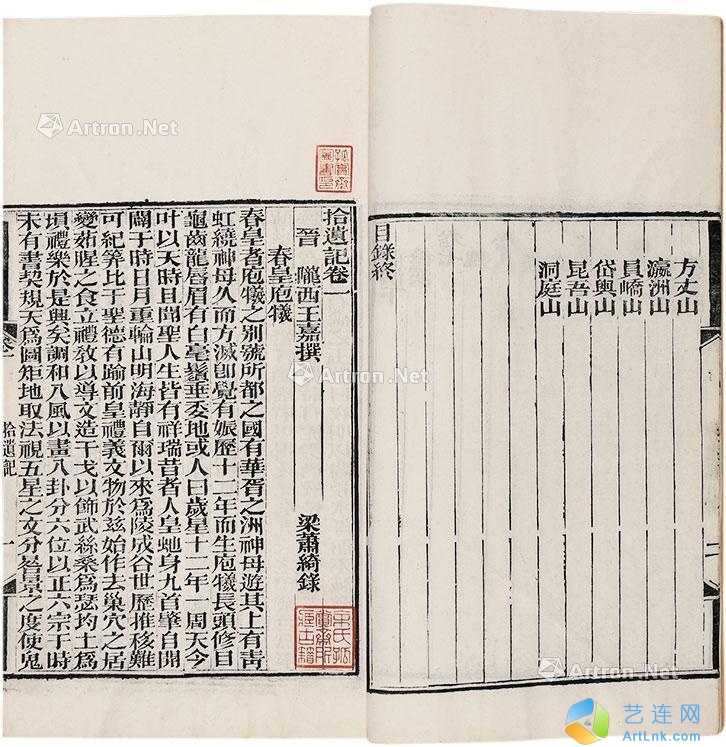 方丈山
瀛洲山
員嶠山
岱輿山
昆吾山
洞庭山
目錄終
拾遺記卷一
晉 隴西王嘉撰 梁蕭綺錄
春皇庖犧
春皇者庖犧之別號所都之國有華胥之洲神母遊其上有靑
虹繞神母久而方滅卽覺有娠歷十二年而生庖犧長頭修目
龜齒龍唇眉有白毫鬚垂委地或人曰歲星十二年一周天今
叶以天時且聞聖人生皆有祥瑞昔者人皇虵身九首肇自開
闢于時日月重輪山明海靜自爾以來爲陵成谷世歷推移難
可紀筭比于聖德有踰前皇禮義文物於兹始作去巢穴之居
變茹腥之食立禮敎以導文造干戈以飾武絲桑爲瑟灼土爲
塤禮樂於是興矣調和八風以畫八卦分六位以正六宗于時
未有書契規天爲圖矩地取法視五星之文分晷景之度使鬼
拾遺記
一
Artron.Net
Artron.Net
Artron.Net
Artron.Net
艺连网
ArtLnk.com